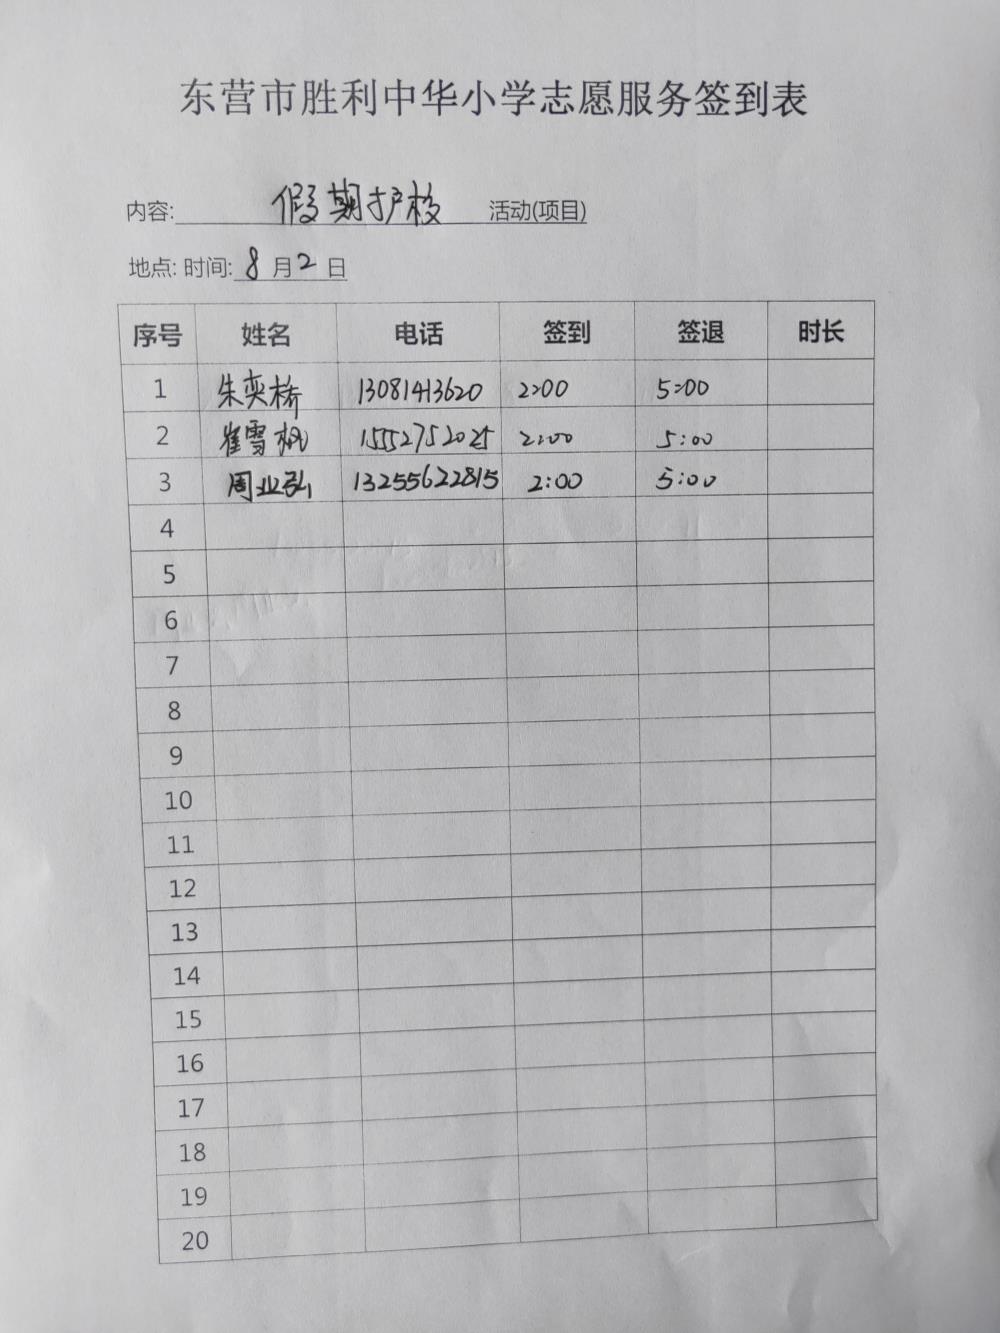 东营市胜利中华小学志愿服务签到表
内容: 假期护校 活动(项目)
地点: 时间: 8月2日
序号 姓名 电话 签到 签退 时长
1 朱奕桥 13081413620 2:00 5:00
2 崔雪枫 15552752025 2:00 5:00
3 周业弘 13255622815 2:00 5:00
4
5
6
7
8
9
10
11
12
13
14
15
16
17
18
19
20